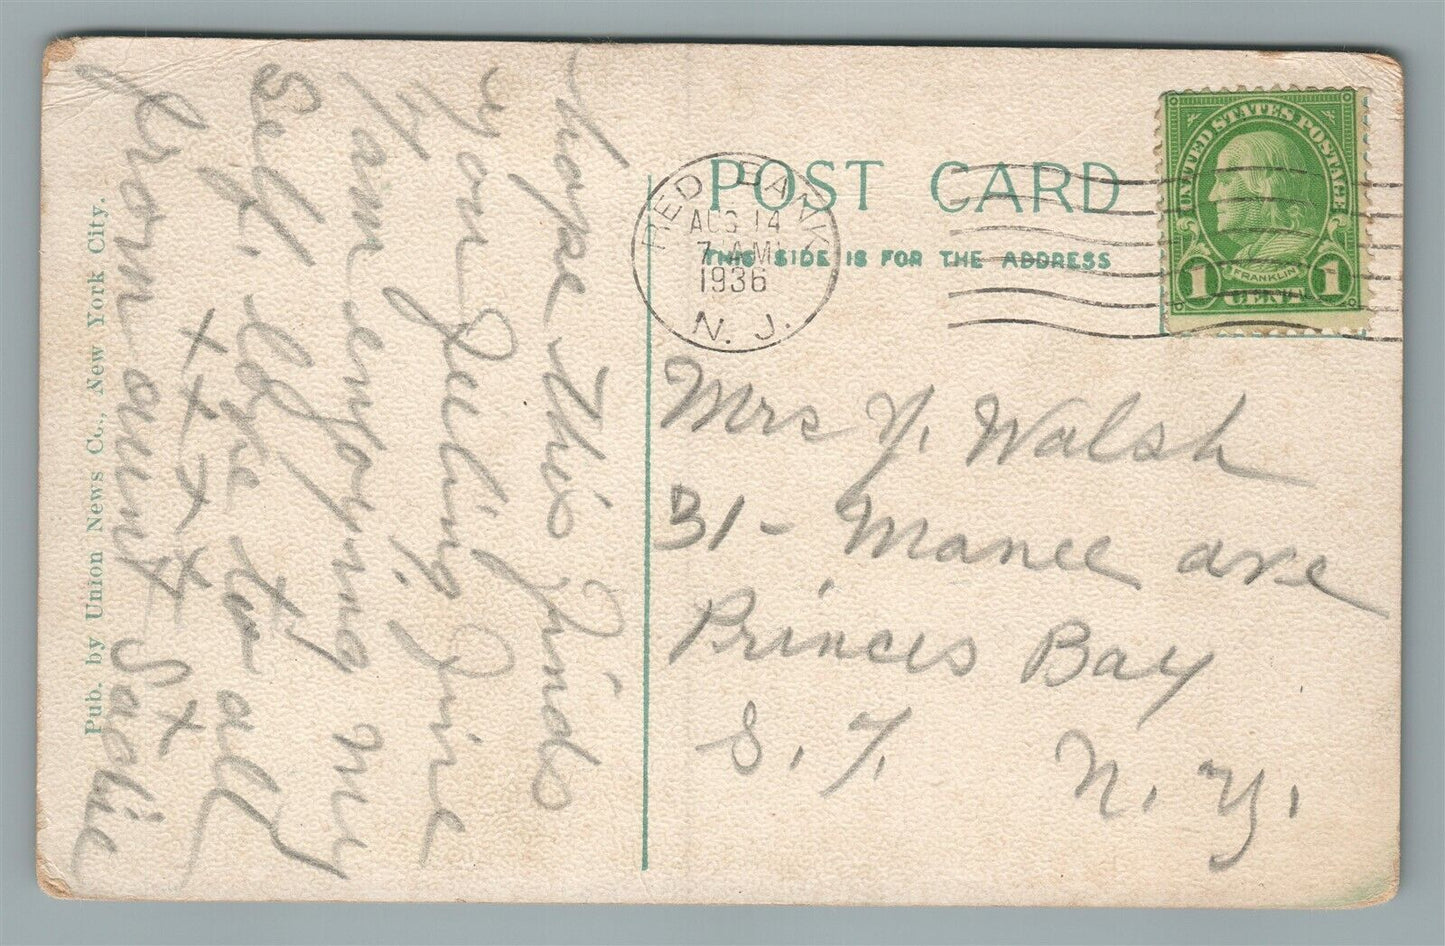 POST CARD
THIS SIDE IS FOR THE ADDRESS
RED BANK
AUG 14
7 AM
1936
N. J.
UNITED STATES POSTAGE
FRANKLIN
1 CENT 1
Mrs Y. Walsh
31 - Manee ave
Princes Bay
S. I. N. Y.
hope this finds
you feeling fine
I am enyoying my
Self. Love to all
x x x x x x
from aunt Sadie
Pub. by Union News Co., New York City.